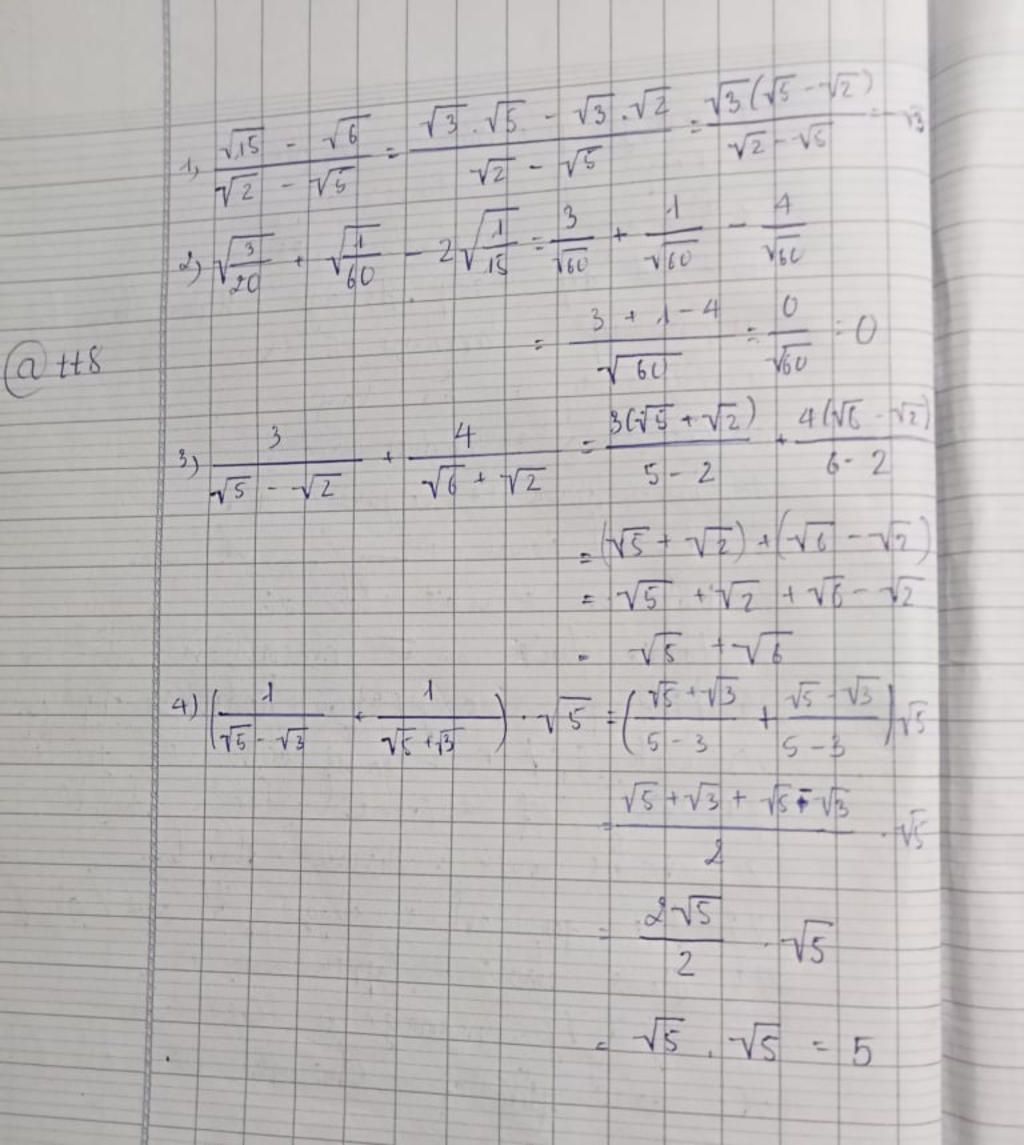 1) (√15 - √6)/(√2 - √5) = (√3 . √5 - √3 . √2)/(√2 - √5) = √3(√5 - √2)/(√2 - √5) = -√3
2) √(3/20) + √(1/60) - 2√(1/15) = 3/√60 + 1/√60 - 4/√60
= (3 + 1 - 4)/√60 = 0/√60 = 0
@ tt8
3) 3/(√5 - √2) + 4/(√6 + √2) = 3(√5 + √2)/(5 - 2) + 4(√6 - √2)/(6 - 2)
= (√5 + √2) + (√6 - √2)
= √5 + √2 + √6 - √2
= √5 + √6
4) (1/(√5 - √3) + 1/(√5 + √3)) . √5 = ((√5 + √3)/(5 - 3) + (√5 - √3)/(5 - 3)) √5
= (√5 + √3 + √5 - √3)/2 . √5
= 2√5/2 . √5
= √5 . √5 = 5